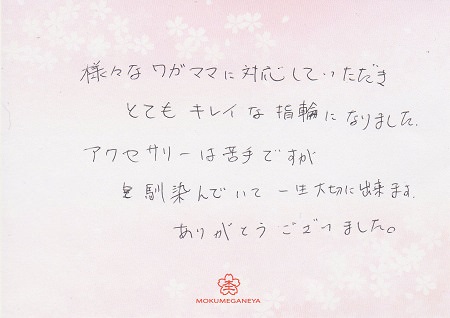 様々なワガママに対応していただき
とても キレイな 指輪に なりました.
アクセサリーは苦手ですが
馴染んでいて 一生大切に出来ます.
ありがとう ございました。
MOKUMEGANEYA